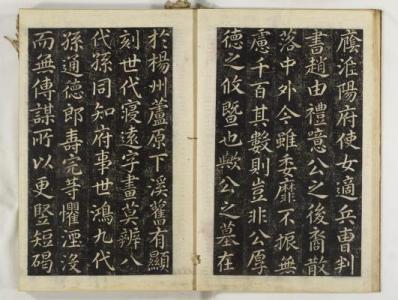 廕淮陽府使女適兵曹判
書趙由禮噫公之後裔散
落中外今雖委靡不振無
慮千百其數則豈非公厚
德之攸曁也歟公之墓在
於楊州蘆原下溪舊有顯
刻世代寢遠字畫莫辨八
代孫同知府事世鴻九代
孫通德郎壽完等懼湮沒
而無傳謀所以更竪短碣